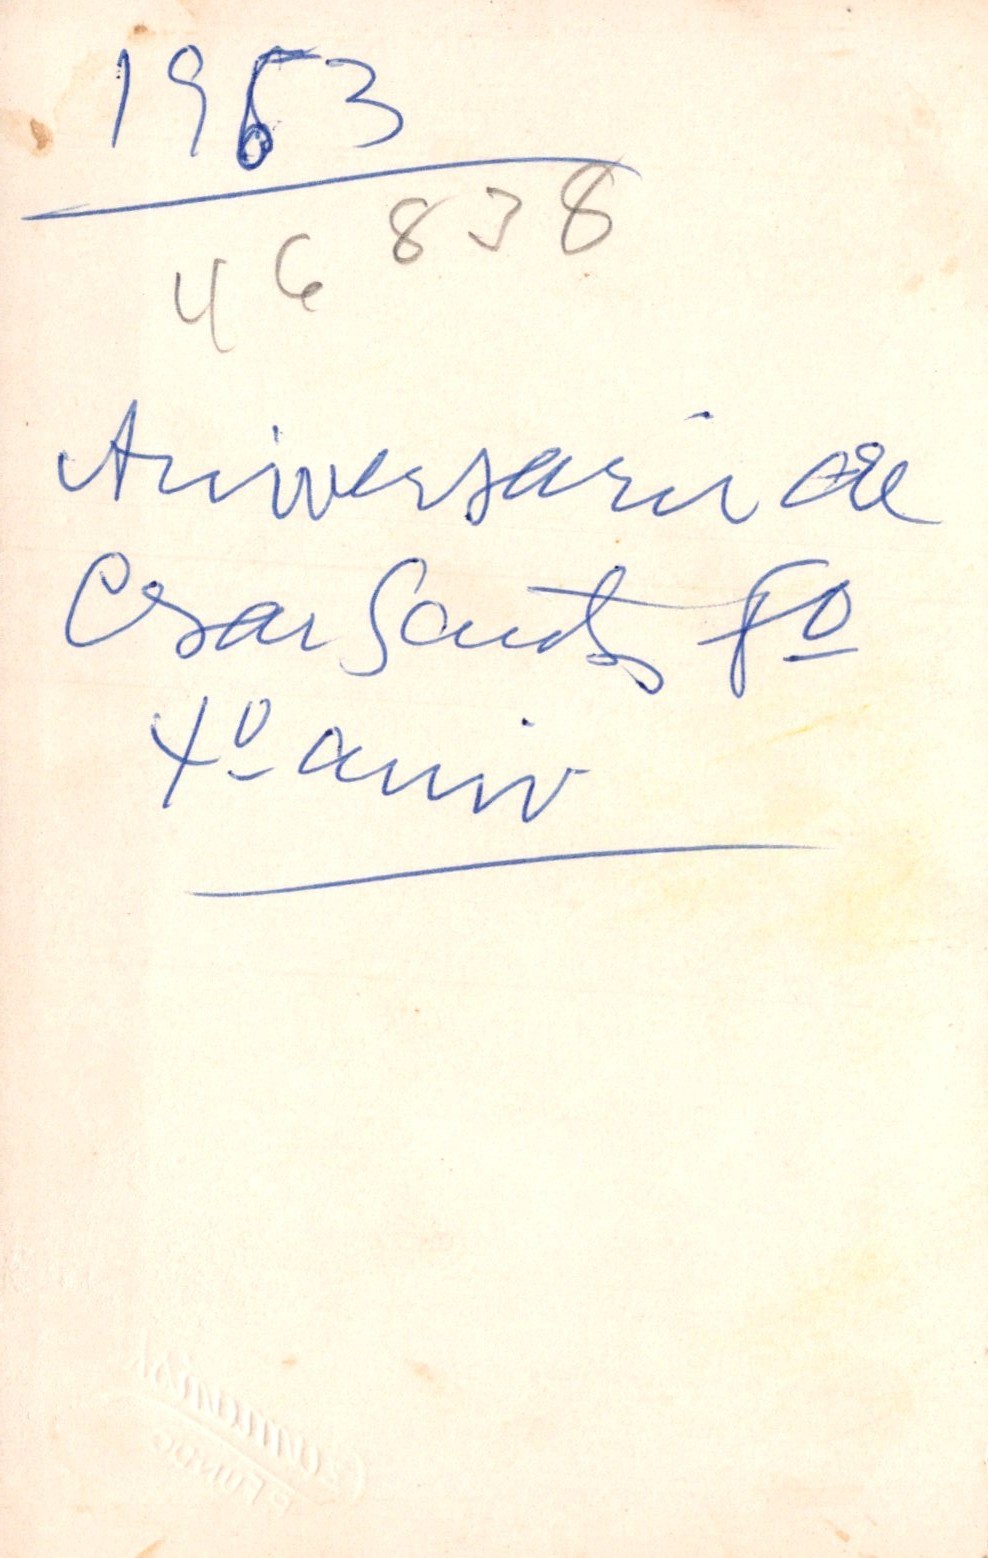 1963
46838
Aniversario de
Cesar Santos Fº
4º aniv